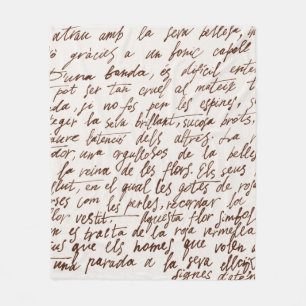 atrau amb la seva bellesa, in
ó gràcies a un bonic capoll
D'una banda, és difícil enten
pot ser tan cruel al mateix
da, si no fos per les espines, s
eger la seva brillant, sucosa brots,
aure l'atenció dels altres. La
dor, una orgullosa de la belles
la reina de les flors. Els seus
luit, en el qual les gotes de rosa
oses com les perles, recordar la
flor vestit. Aquesta flor simbol
es tracta de la roja vermella
ius que els homes, que voten a
una parada a la seva elleçó
signes d'aten